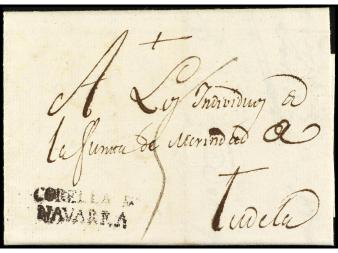 A Los Individuos d
la Junta de Merindad de
Tudela
5
CORELLA
NAVARRA